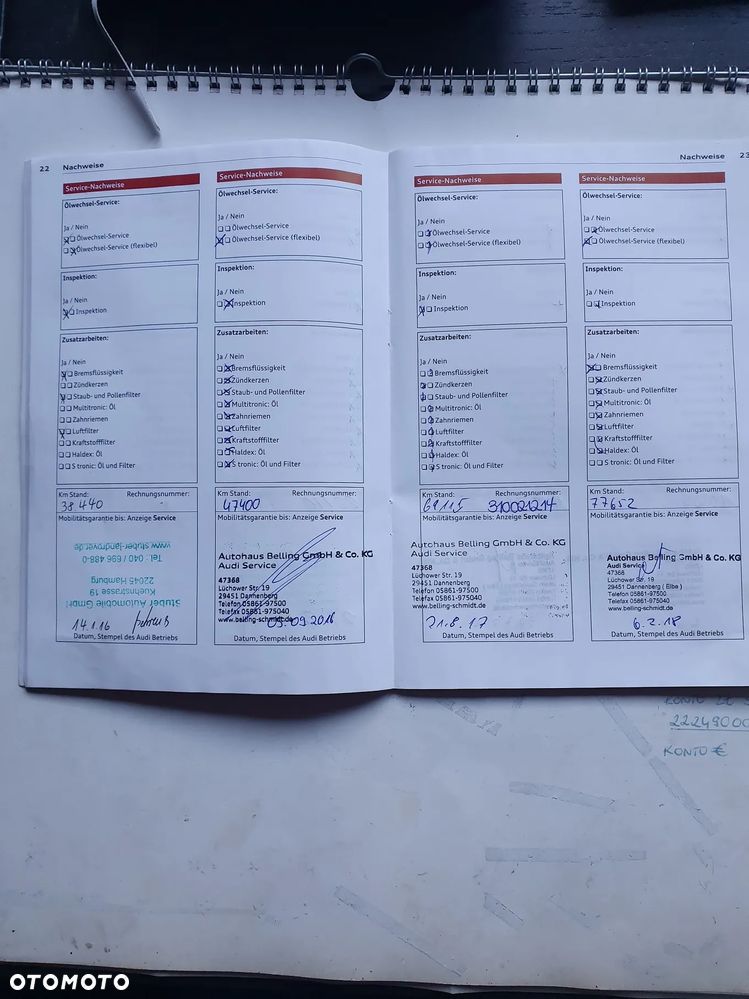 22 Nachweise
Service-Nachweise
Ölwechsel-Service:
Ja / Nein
Ölwechsel-Service
Ölwechsel-Service (flexibel)
Inspektion:
Ja / Nein
Inspektion
Zusatzarbeiten:
Ja / Nein
Bremsflüssigkeit
Zündkerzen
Staub- und Pollenfilter
Multitronic: Öl
Zahnriemen
Luftfilter
Kraftstofffilter
Haldex: Öl
S tronic: Öl und Filter
Km Stand: Rechnungsnummer:
38 440
Mobilitätsgarantie bis: Anzeige Service
Stuber Automobile GmbH
Kuehnstrasse 19
22045 Hamburg
Tel. 040 / 696 488-0
www.stuber-landrover.de
14.1.16
Datum, Stempel des Audi Betriebs
Service-Nachweise
Ölwechsel-Service:
Ja / Nein
Ölwechsel-Service
Ölwechsel-Service (flexibel)
Inspektion:
Ja / Nein
Inspektion
Zusatzarbeiten:
Ja / Nein
Bremsflüssigkeit
Zündkerzen
Staub- und Pollenfilter
Multitronic: Öl
Zahnriemen
Luftfilter
Kraftstofffilter
Haldex: Öl
S tronic: Öl und Filter
Km Stand: Rechnungsnummer:
47400
Mobilitätsgarantie bis: Anzeige Service
Autohaus Belling GmbH & Co. KG
Audi Service
47368
Lüchower Str. 19
29451 Dannenberg
Telefon 05861-97500
Telefax 05861-975040
www.belling-schmidt.de
05.09.2016
Datum, Stempel des Audi Betriebs
Nachweise 23
Service-Nachweise
Ölwechsel-Service:
Ja / Nein
Ölwechsel-Service
Ölwechsel-Service (flexibel)
Inspektion:
Ja / Nein
Inspektion
Zusatzarbeiten:
Ja / Nein
Bremsflüssigkeit
Zündkerzen
Staub- und Pollenfilter
Multitronic: Öl
Zahnriemen
Luftfilter
Kraftstofffilter
Haldex: Öl
S tronic: Öl und Filter
Km Stand: Rechnungsnummer:
69115 310021214
Mobilitätsgarantie bis: Anzeige Service
Autohaus Belling GmbH & Co. KG
Audi Service
47368
Lüchower Str. 19
29451 Dannenberg
Telefon 05861-97500
Telefax 05861-975040
www.belling-schmidt.de
21.8.17
Datum, Stempel des Audi Betriebs
Service-Nachweise
Ölwechsel-Service:
Ja / Nein
Ölwechsel-Service
Ölwechsel-Service (flexibel)
Inspektion:
Ja / Nein
Inspektion
Zusatzarbeiten:
Ja / Nein
Bremsflüssigkeit
Zündkerzen
Staub- und Pollenfilter
Multitronic: Öl
Zahnriemen
Luftfilter
Kraftstofffilter
Haldex: Öl
S tronic: Öl und Filter
Km Stand: Rechnungsnummer:
77652
Mobilitätsgarantie bis: Anzeige Service
Autohaus Belling GmbH & Co. KG
Audi Service
47368
Lüchower Str. 19
29451 Dannenberg ( Elbe )
Telefon 05861-97500
Telefax 05861-975040
www.belling-schmidt.de
6.2.18
Datum, Stempel des Audi Betriebs
KONTO
22249000
KONTO €
OTOMOTO